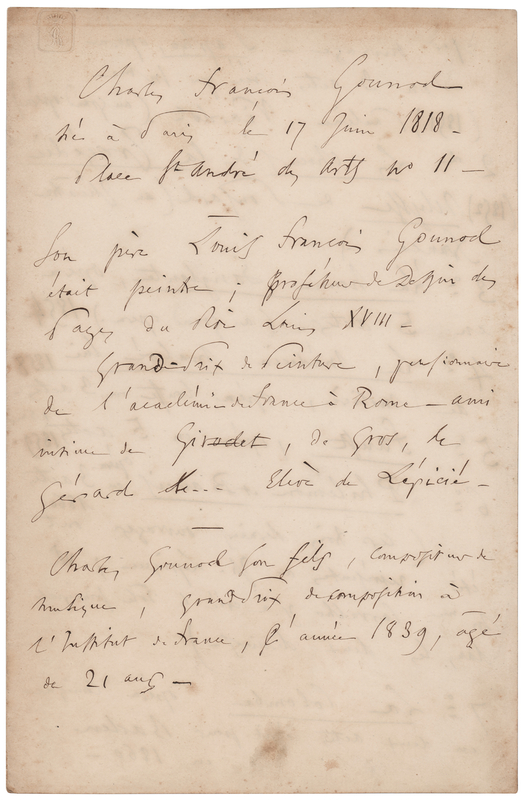 Charles François Gounod
né à Paris le 17 Juin 1818 –
Place St André des Arts no 11 –
Son père Louis François Gounod
était peintre ; professeur de Dessin des
Pages du Roi Louis XVIII –
grand-Prix de Peinture, pensionnaire
de l'académie de France à Rome – ami
intime de Girodet, de Gros, de
Gérard &c... Elève de Lépicié –
Charles Gounod son fils, compositeur de
musique, grand Prix de composition à
l'Institut de France, l'année 1839, âgé
de 21 ans –